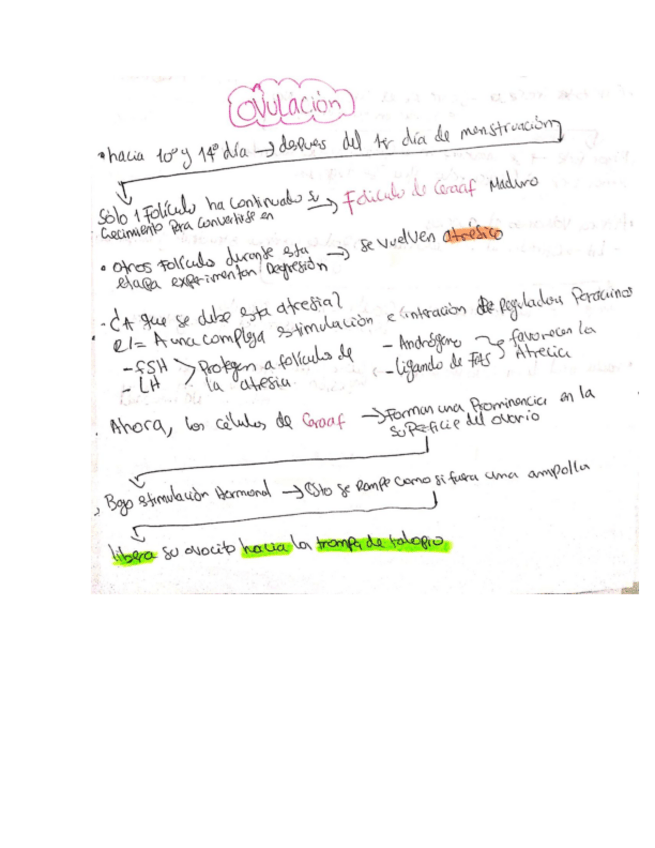 OVULACIÓN
• hacia 10º y 14º día → despues del 1er día de menstruación
Sólo 1 Folículo ha continuado su → Folículo de Graaf Maduro
Crecimiento para convertirse en
• Otros Folículo durante esta → se vuelven atresico
etapa experimentan Regresión
• ¿A que se debe esta atresia?
R/= A una compleja stimulación e interacción de Reguladores Paracrinos
- FSH > Protegen a foliculo de - Andrógeno > favorecen la
- LH la atresia - Ligando de FAS Atrecia
• Ahora, los células de Graaf → Forman una Prominencia en la
superficie del ovario
• Bajo stimulación Hormonal → Esto se Rompe como si fuera una ampolla
libera su ovocito hacia la trompa de falopio